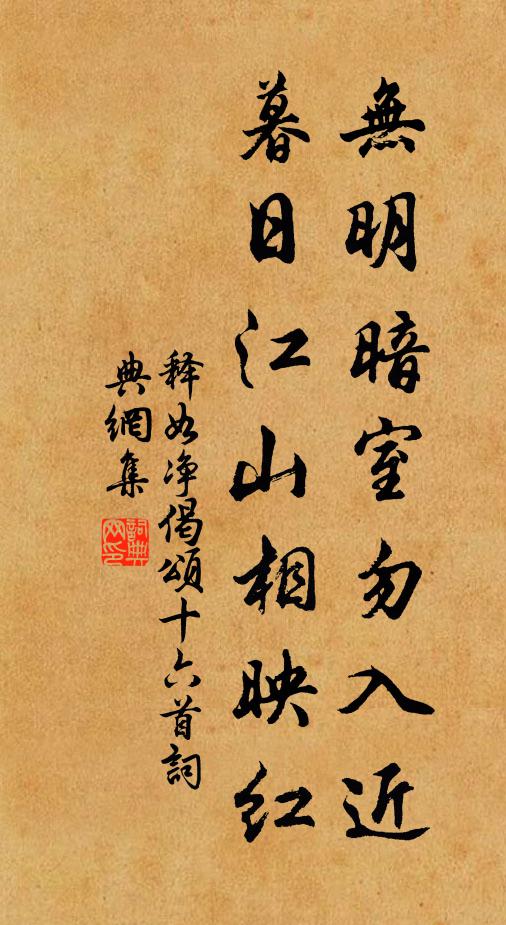 無明暗室勿入近
暮日江山相映紅
釋如净偈頌十六首詞
典網集
詞典
网印